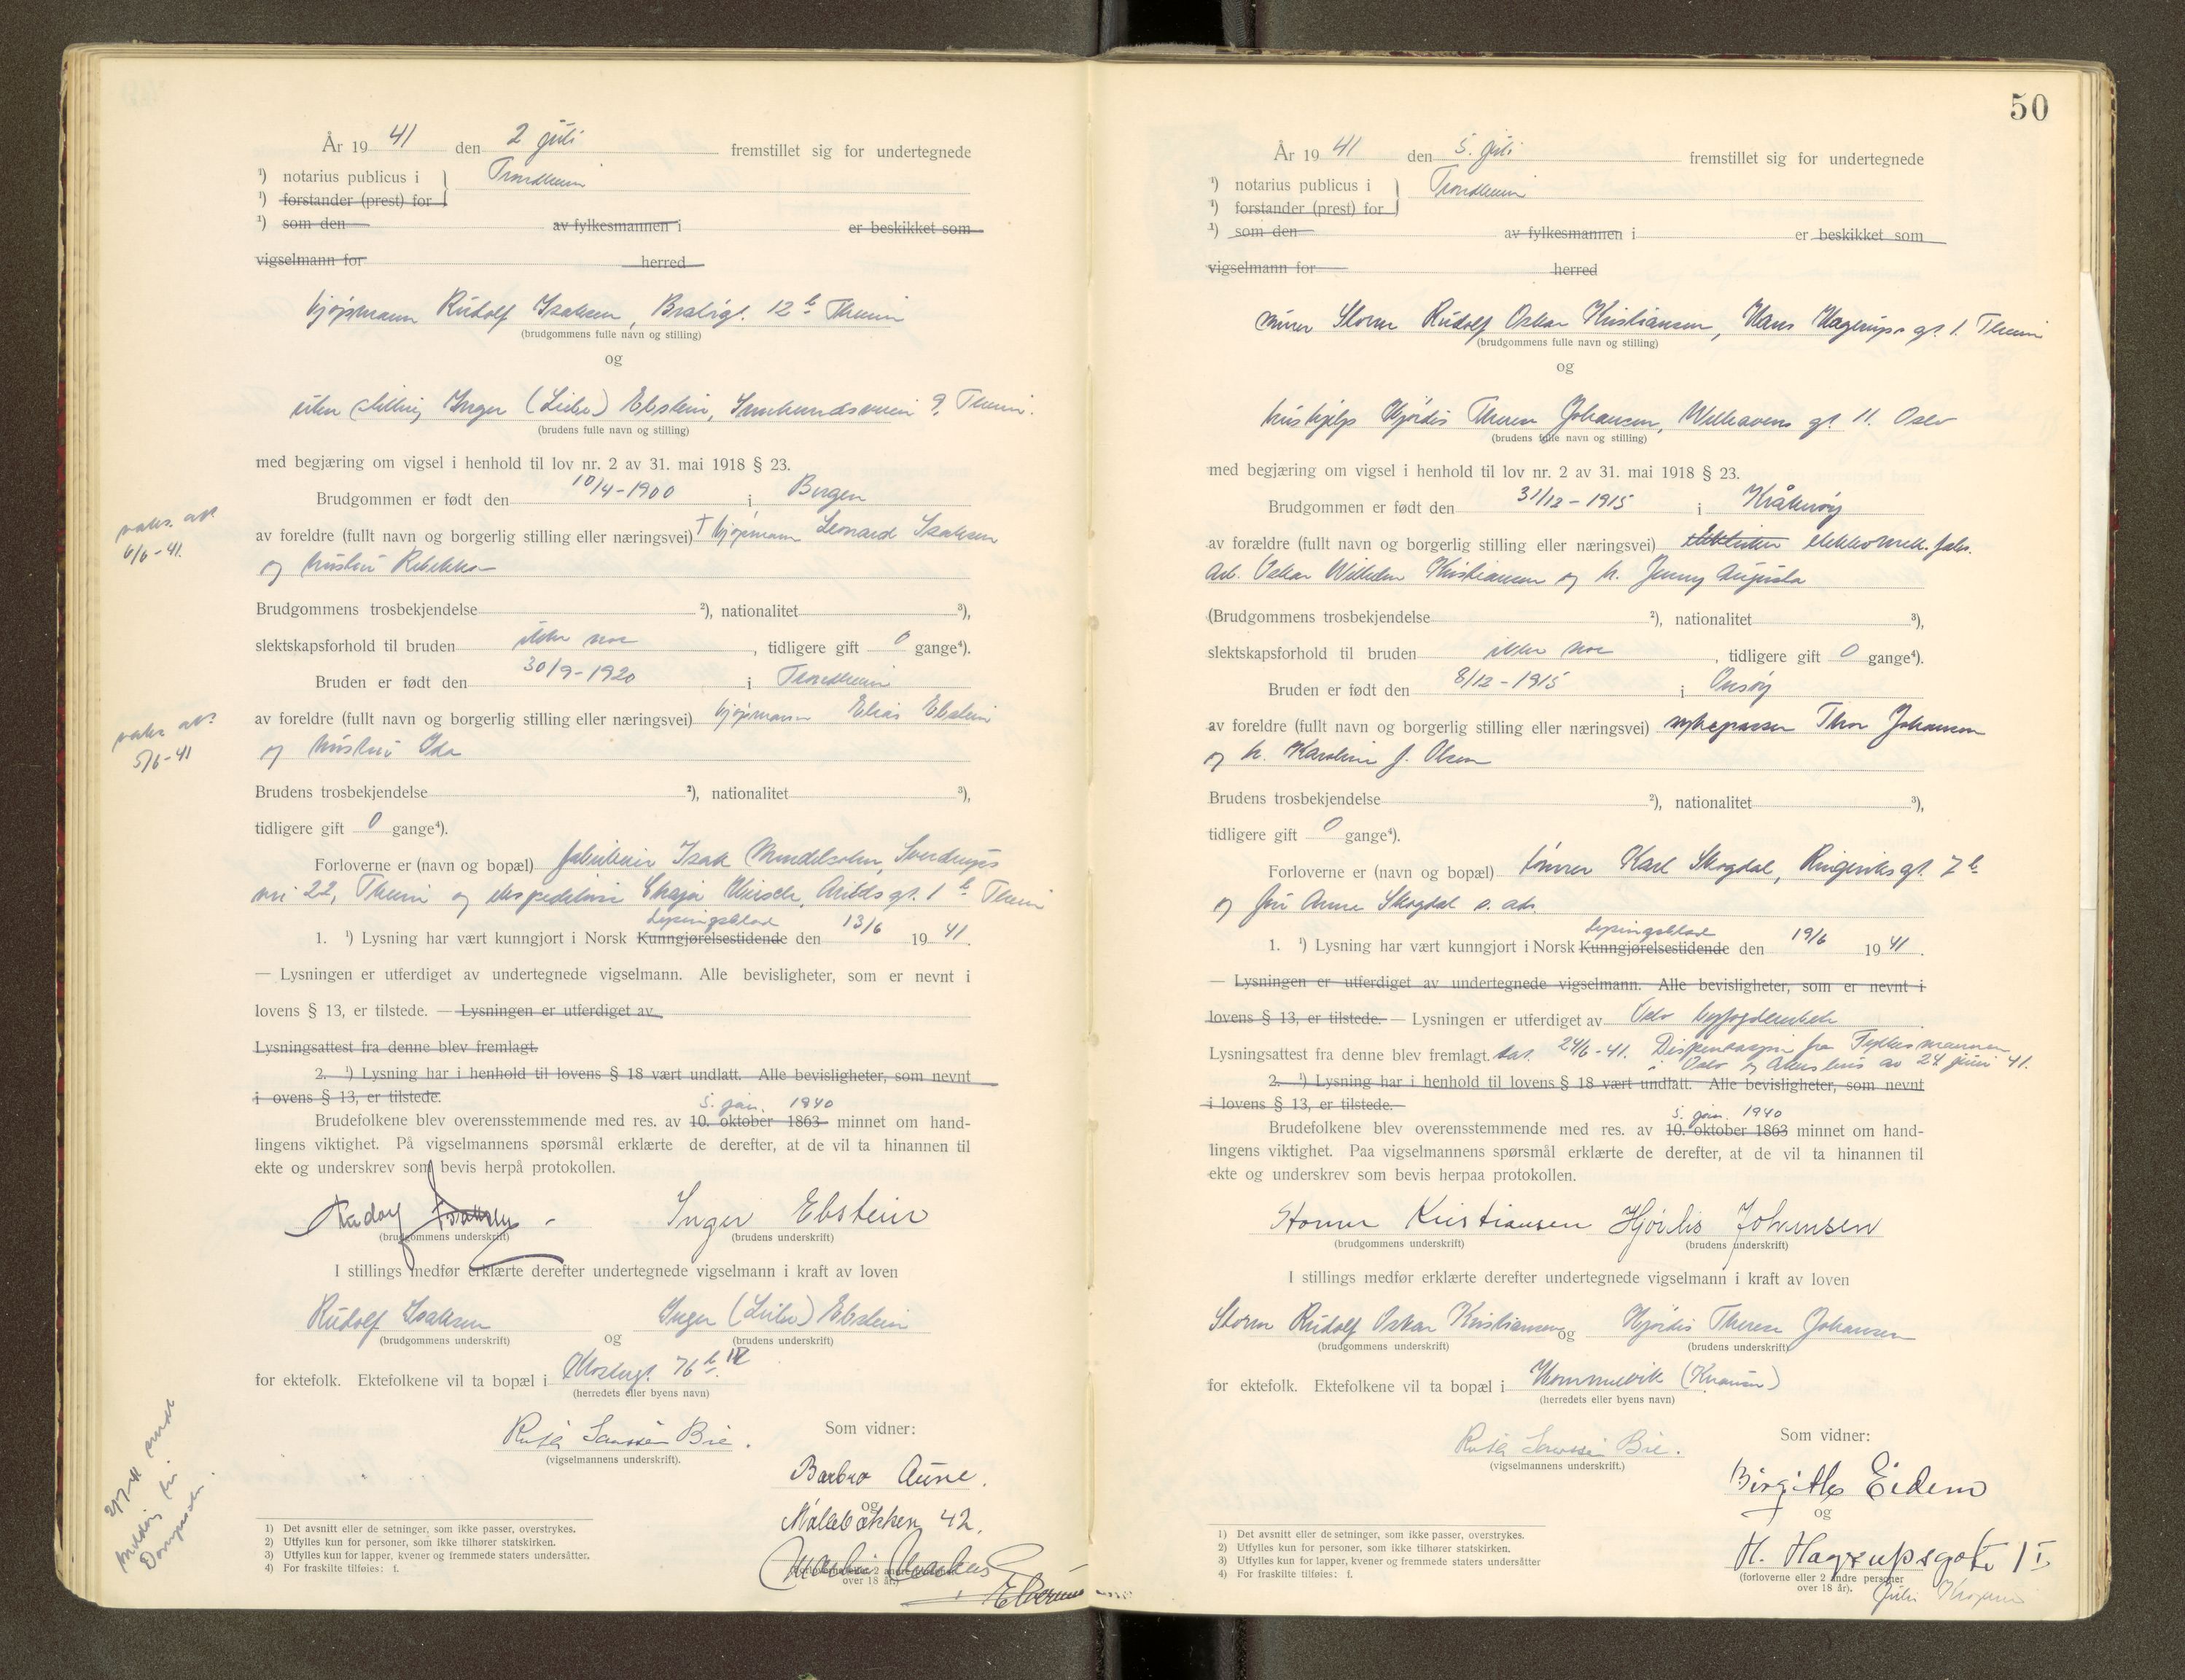 År 19 41 den 2 juli fremstillet sig for undertegnede
¹) notarius publicus i Trondheim
¹) forstander (prest) for
¹) som den av fylkesmannen i er beskikket som
vigselmann for herred
kjøpmann Rudolf Isaksen, 12 b Theim
(brudgommens fulle navn og stilling)
og
uten stilling Inger (Liebe) Ebstein, 9, Theim.
(brudens fulle navn og stilling)
med begjæring om vigsel i henhold til lov nr. 2 av 31. mai 1918 § 23.
Brudgommen er født den 10/4-1900 i Bergen
vaks. att
6/6-41.
av foreldre (fullt navn og borgerlig stilling eller næringsvei) † kjøpmann Leonard Isaksen
og hustru Rebekka
Brudgommens trosbekjendelse ²), nationalitet ³),
slektskapsforhold til bruden ikke noe , tidligere gift 0 gange⁴).
Bruden er født den 30/9-1920 i Trondheim
vaks. att
5/6-41
av foreldre (fullt navn og borgerlig stilling eller næringsvei) kjøpmann Elias Ebstein
og hustru Ida
Brudens trosbekjendelse ²), nationalitet ³),
tidligere gift 0 gange⁴).
Forloverne er (navn og bopæl) fabrikeier Isak Mendelsohn, Sverdrups
vei 22, Theim og Chaja Hirsch, Arildsgt. 1 b Theim
Lysingsblad
1. ¹) Lysning har vært kunngjort i Norsk Kunngjørelsestidende den 13/6 19 41.
— Lysningen er utferdiget av undertegnede vigselmann. Alle bevisligheter, som er nevnt i
lovens § 13, er tilstede. — Lysningen er utferdiget av
Lysningsattest fra denne blev fremlagt.
2. ¹) Lysning har i henhold til lovens § 18 vært undlatt. Alle bevisligheter, som nevnt
i ovens § 13, er tilstede.
5. jan. 1940
Brudefolkene blev overensstemmende med res. av 10. oktober 1863 minnet om hand-
lingens viktighet. På vigselmannens spørsmål erklærte de derefter, at de vil ta hinannen til
ekte og underskrev som bevis herpå protokollen.
Rudolf Isaksen Inger Ebstein
(brudgommens underskrift) (brudens underskrift)
I stillings medfør erklærte derefter undertegnede vigselmann i kraft av loven
Rudolf Isaksen Inger (Liebe) Ebstein
(brudgommens underskrift) og (brudens underskrift)
for ektefolk. Ektefolkene vil ta bopæl i 76 b IV
(herredets eller byens navn)
Som vidner:
Bie.
(vigselmannens underskrift).
Barbro Aune.
og
Møllebakken 42.
over 18 år.)
2/7-41 sendt
melding til
1) Det avsnitt eller de setninger, som ikke passer, overstrykes.
2) Utfylles kun for personer, som ikke tilhører statskirken.
3) Utfylles kun for lapper, kvener og fremmede staters undersåtter.
4) For fraskilte tilføies: f.
50
År 19 41 den 5. juli fremstillet sig for undertegnede
¹) notarius publicus i Trondheim
¹) forstander (prest) for
¹) som den av fylkesmannen i er beskikket som
vigselmann for herred
murer Storm Rudolf Oskar Kristiansen, Hans Hagerups gt. 1. Theim
(brudgommens fulle navn og stilling)
og
hushjelp Hjørdis Therese Johansen, Welhavens gt. 11. Oslo
(brudens fulle navn og stilling)
med begjæring om vigsel i henhold til lov nr. 2 av 31. mai 1918 § 23.
Brudgommen er født den 31/12-1915 i Kråkerøy
av forældre (fullt navn og borgerlig stilling eller næringsvei) elektromek. fabr.
arb. Oskar Wilhelm Kristiansen og h. Jenny Augusta
(Brudgommens trosbekjendelse ²), nationalitet ³),
slektskapsforhold til bruden ikke noe , tidligere gift 0 gange⁴).
Bruden er født den 8/12-1915 i Onsøy
av foreldre (fullt navn og borgerlig stilling eller næringsvei) sykepasser Thor Johansen
og h. Karoline J. Olsen
Brudens trosbekjendelse ²), nationalitet ³),
tidligere gift 0 gange⁴).
Forloverne er (navn og bopæl) tømrer Karl Skogdal, Ringeriksgt. 7 b
og fru Anna Skogdal s. adr.
Lysingsblad
1. ¹) Lysning har vært kunngjort i Norsk Kunngjørelsestidende den 19/6 19 41.
— Lysningen er utferdiget av undertegnede vigselmann. Alle bevisligheter, som er nevnt i
lovens § 13, er tilstede. — Lysningen er utferdiget av Oslo byfogdembete
Lysningsattest fra denne blev fremlagt. dat. 24/6-41. Dispensasjon fra Fylkesmannen
i Oslo og Akershus av 24 juni 41.
2. ¹) Lysning har i henhold til lovens § 18 vært undlatt. Alle bevisligheter, som nevnt
i lovens § 13, er tilstede.
5. jan. 1940
Brudefolkene blev overensstemmende med res. av 10. oktober 1863 minnet om hand-
lingens viktighet. Paa vigselmannens spørsmål erklærte de derefter, at de vil ta hinannen til
ekte og underskrev som bevis herpaa protokollen.
Storm Kristiansen Hjørdis Johansen
(brudgommens underskrift) (brudens underskrift)
I stillings medfør erklærte derefter undertegnede vigselmann i kraft av loven
Storm Rudolf Oskar Kristiansen og Hjørdis Therese Johansen
(brudgommens underskrift) (brudens underskrift)
for ektefolk. Ektefolkene vil ta bopæl i Hommelvik (Knausen)
(herredets eller byens navn)
Som vidner:
Bie.
(vigselmannens underskrift.)
Birgithe Eidem
og
H. Hagrupsgate 1 I
(forloverne eller 2 andre personer
over 18 år).
1) Det avsnitt eller de setninger, som ikke passer, overstrykes.
2) Utfylles kun for personer, som ikke tilhører statskirken.
3) Utfylles kun for lapper, kvener og fremmede staters undersåtter
4) For fraskilte tilføies: f.